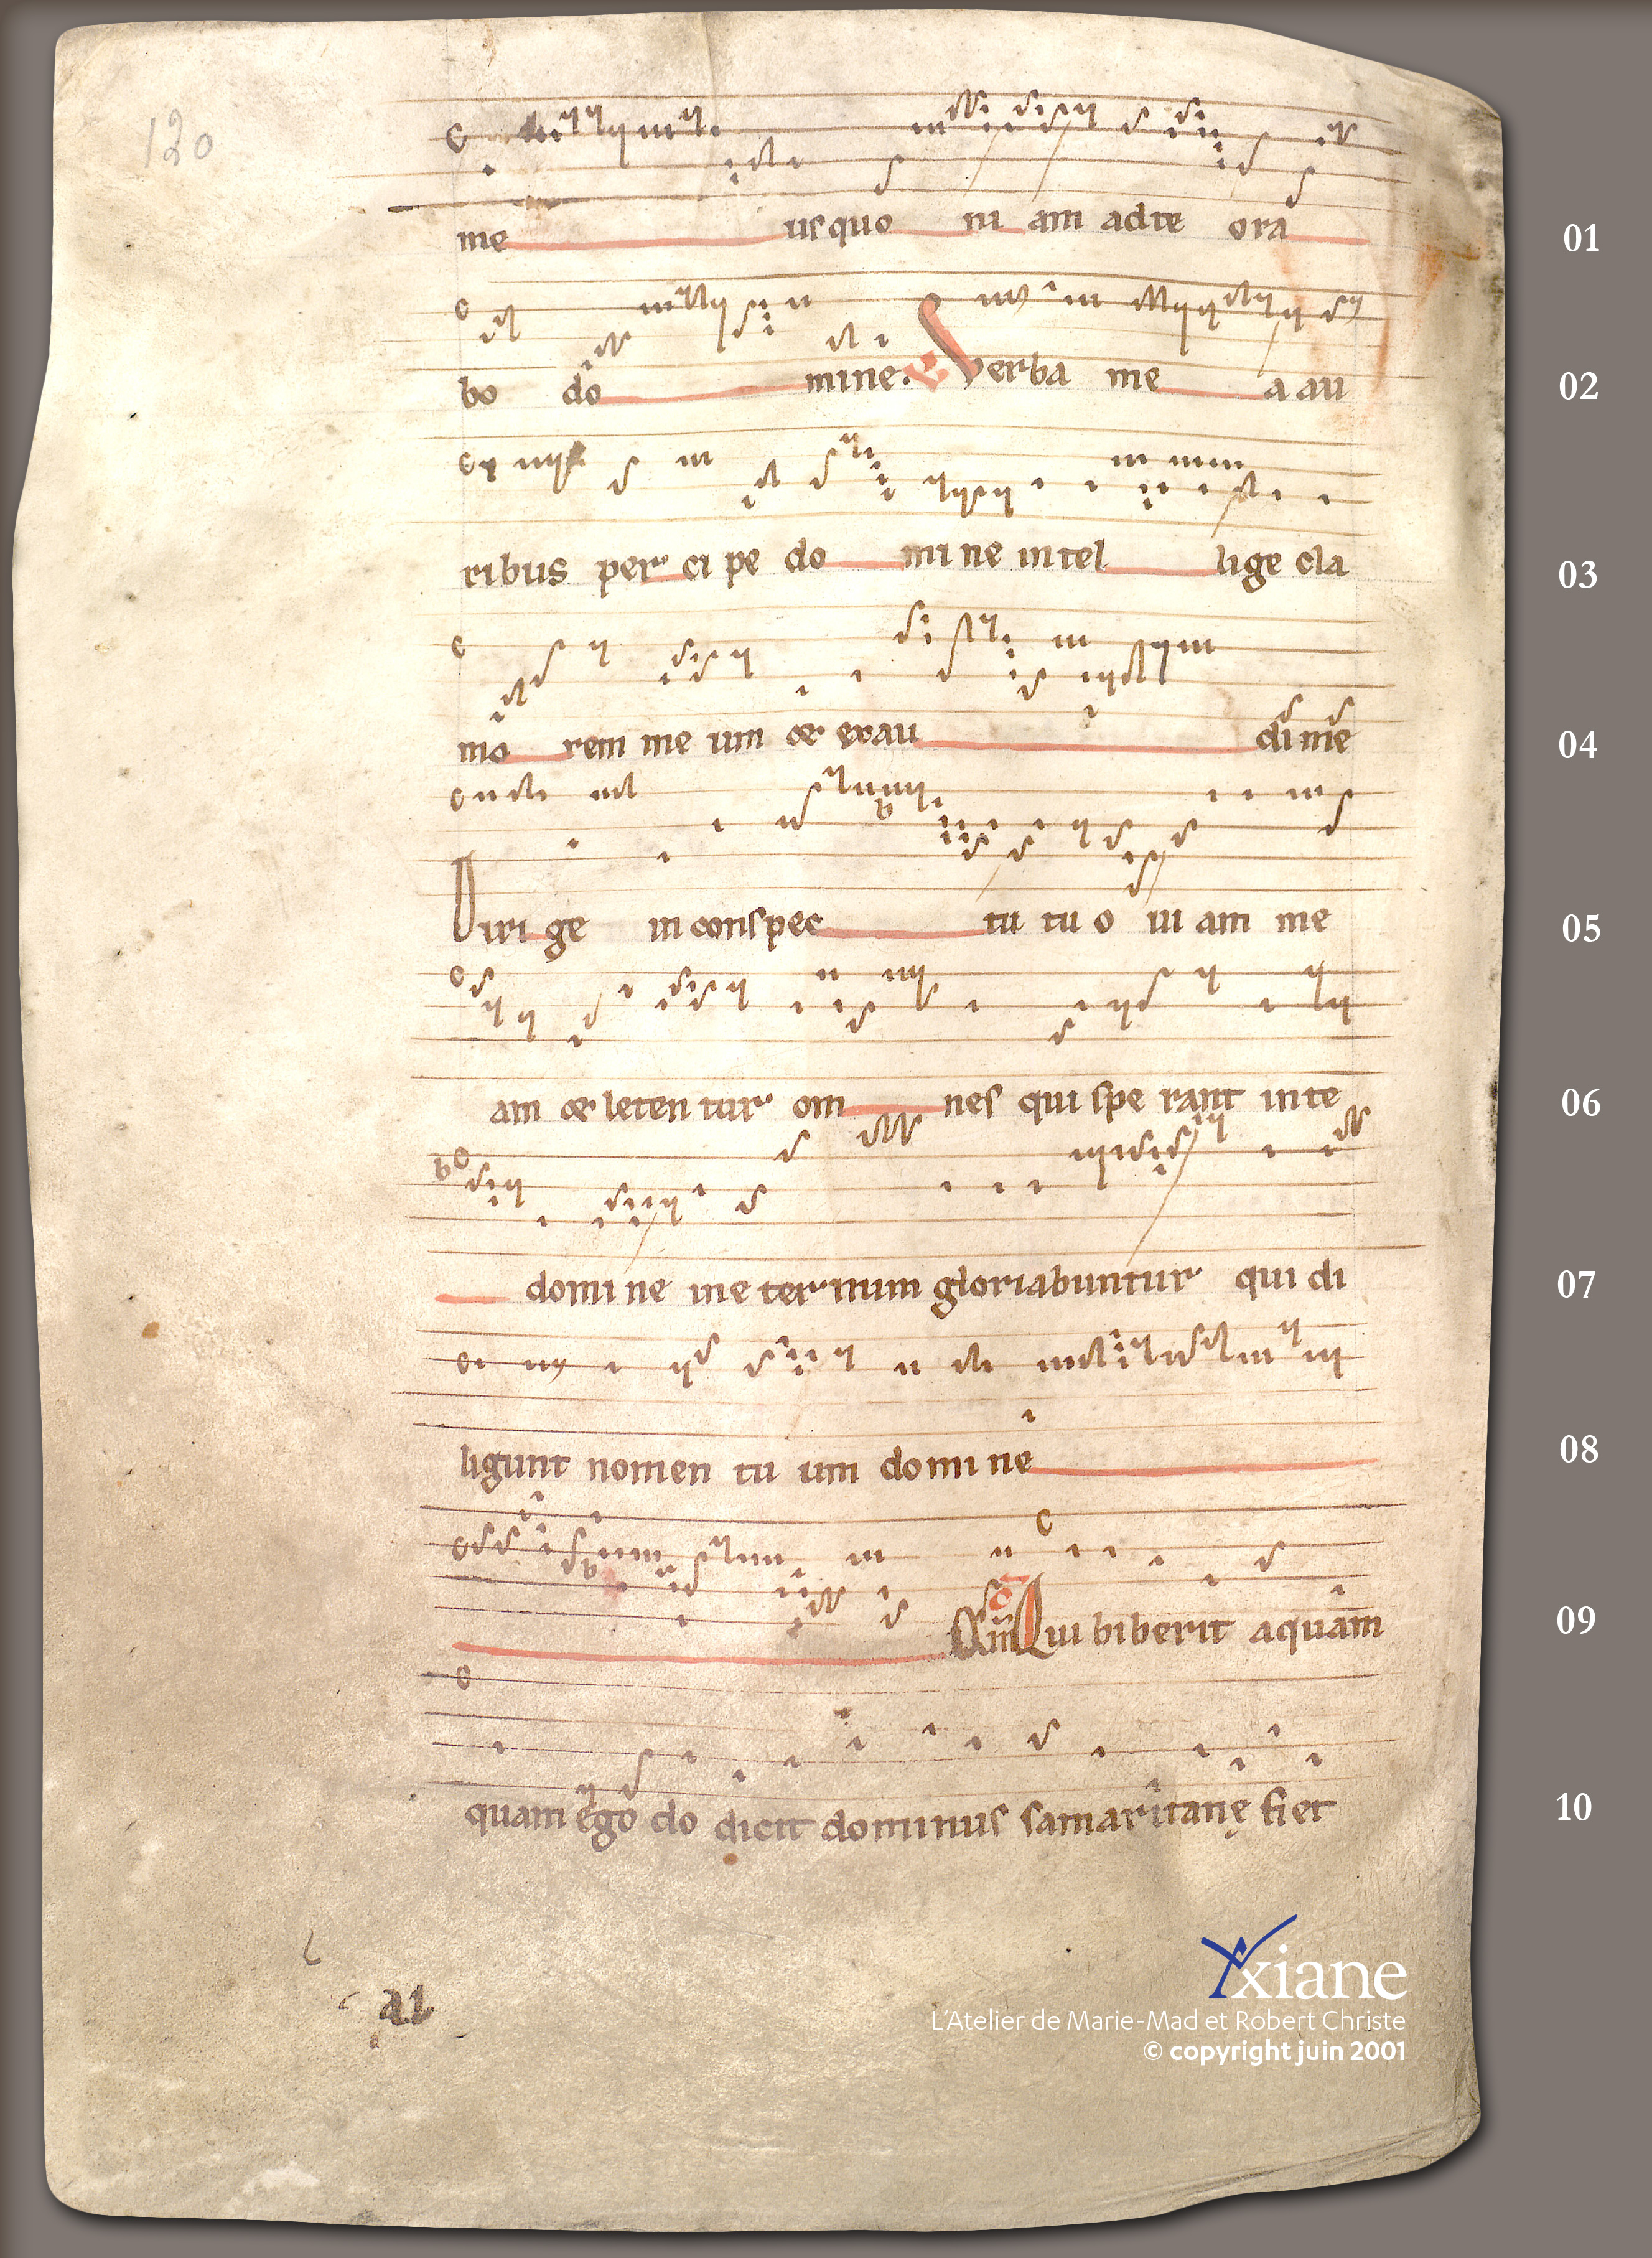 120
me us quo ni am ad te ora 01
bo do mine. V verba me a au 02
ribus per ci pe do mi ne in tel lige cla 03
mo rem me um et exau di me 04
Diri ge in conspec tu tu o ui am me 05
am et leten tur om nes qui spe rant in te 06
domi ne in e ter num gloriabuntur qui di 07
ligunt nomen tu um do mi ne 08
Co Qui biberit aquam 09
quam ego do dicit dominus samaritanę fiet 10
Yxiane
L'Atelier de Marie-Mad et Robert Christe
© copyright juin 2001